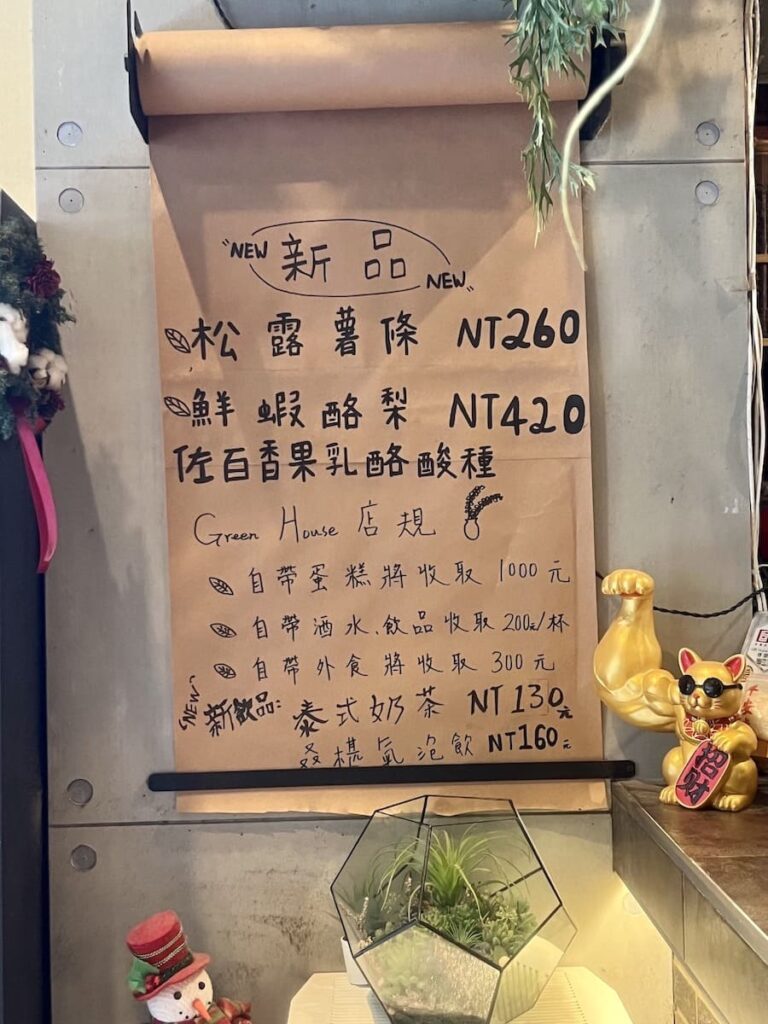 NEW 新品 NEW
松露薯條 NT260
鮮蝦酪梨 NT420
佐百香果乳酪酸種
Green House 店規
自帶蛋糕將收取 1000 元
自帶酒水、飲品收取 200元/杯
自帶外食將收取 300 元
NEW 新飲品: 泰式奶茶 NT 130元
桑椹氣泡飲 NT160元
招财